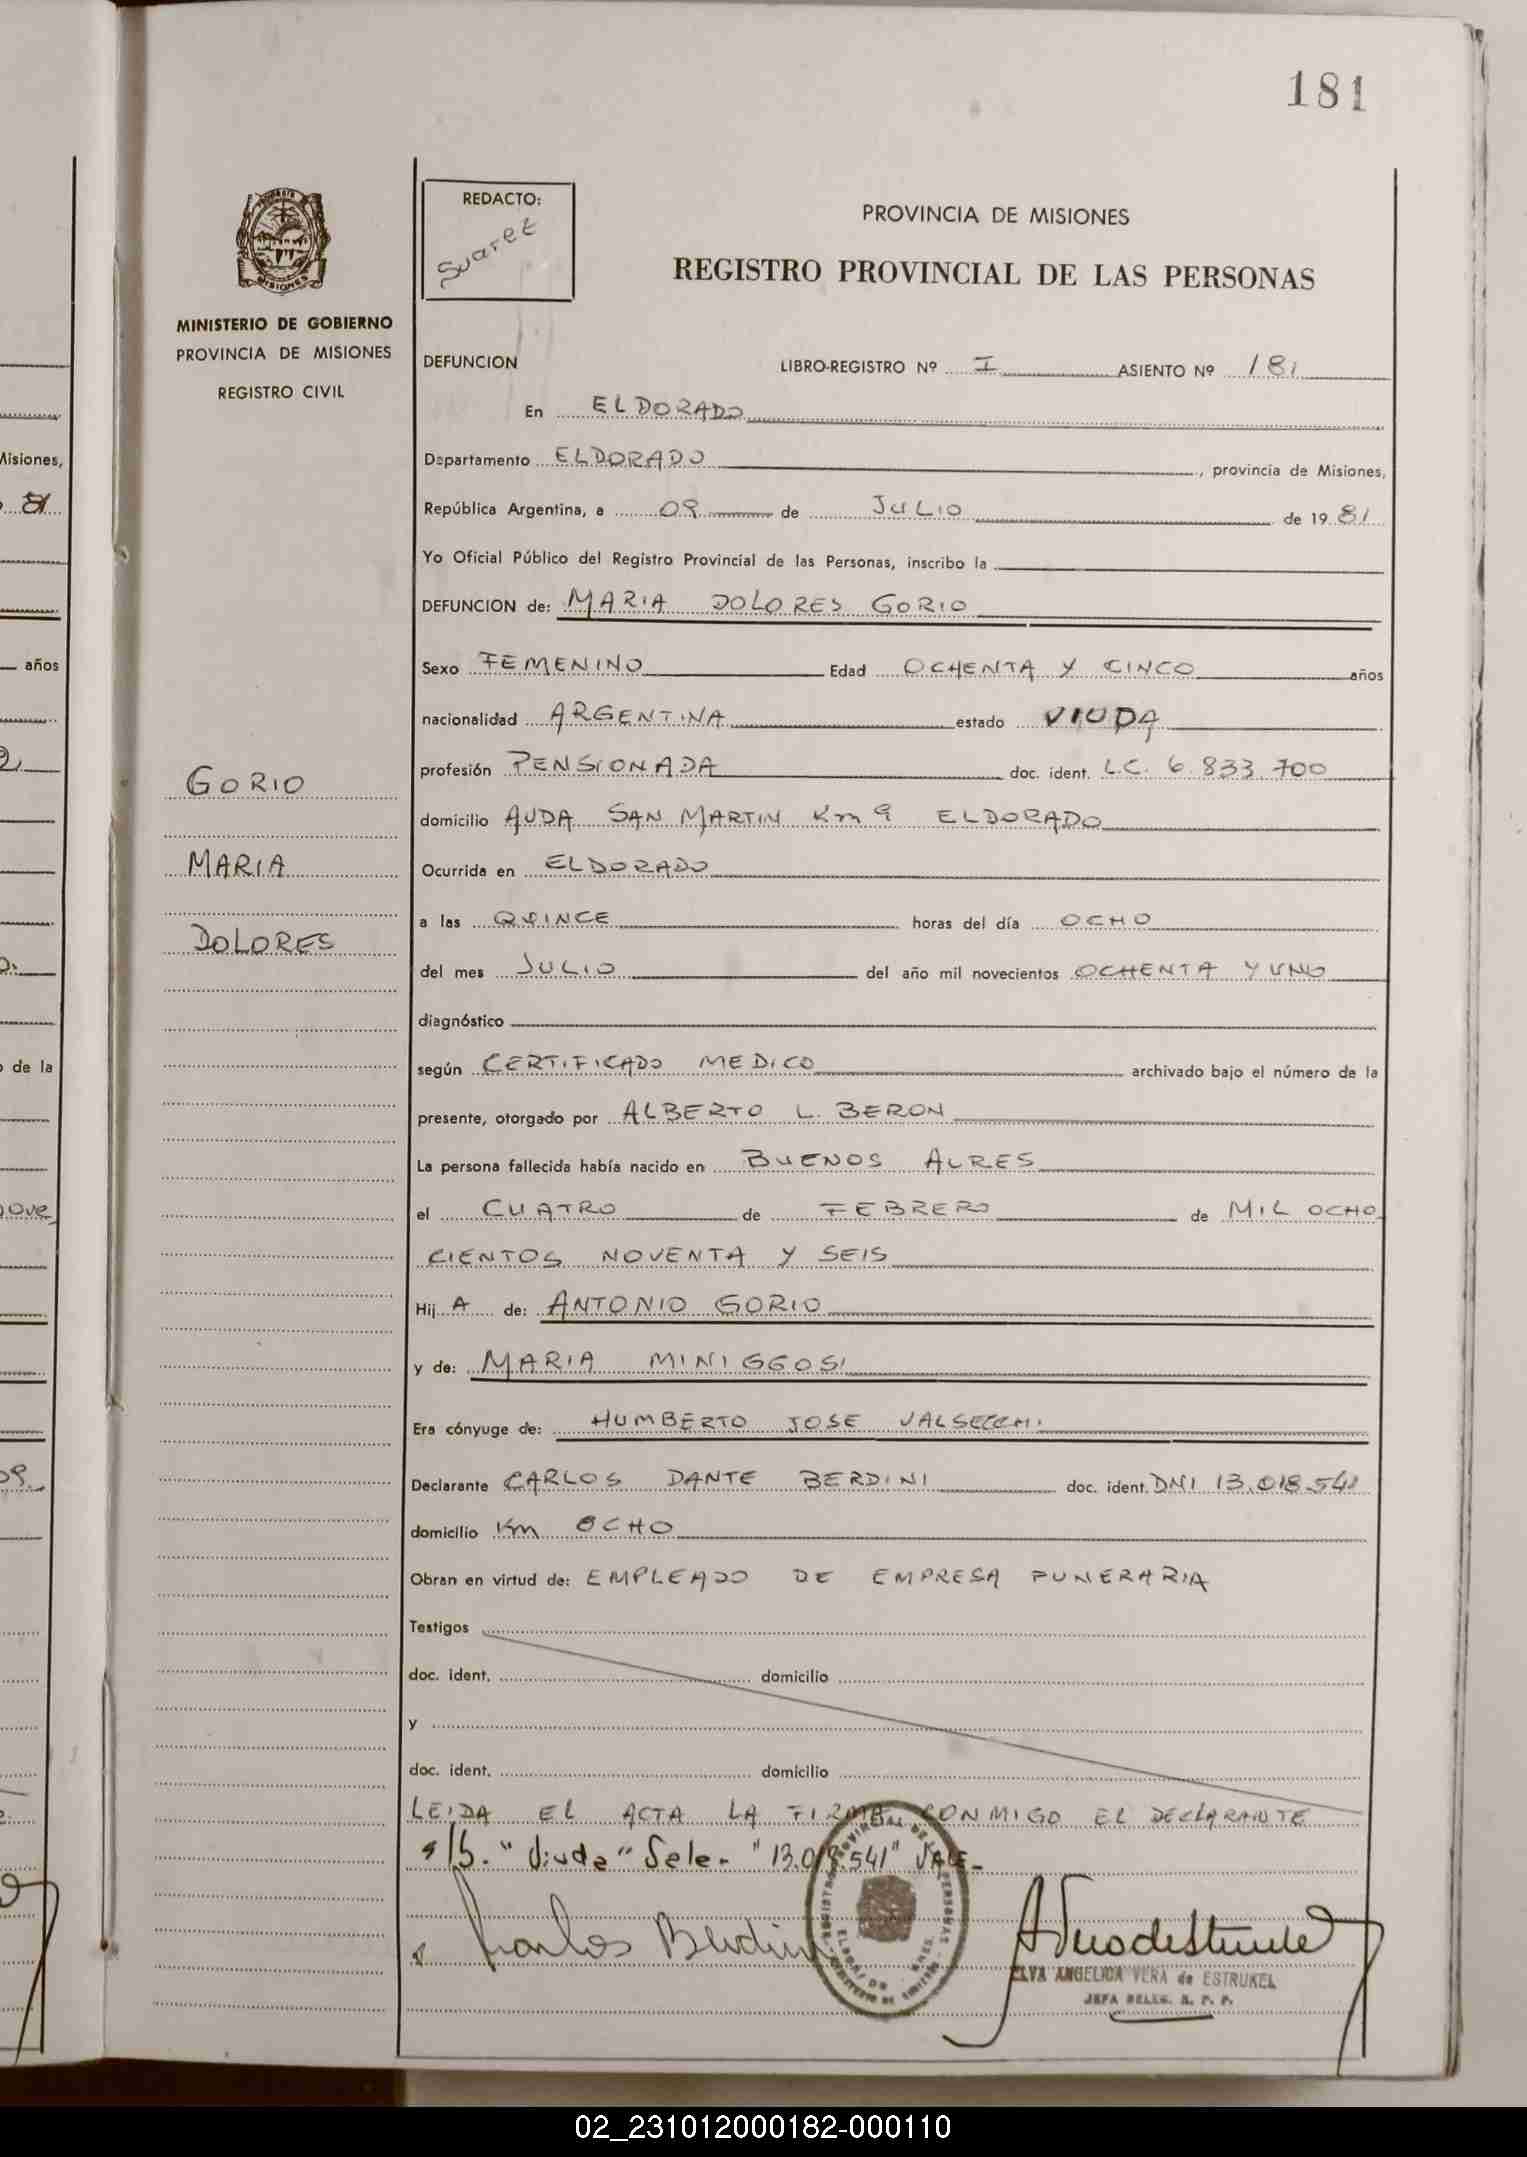 181
REDACTO:
Suarez
PROVINCIA DE MISIONES
REGISTRO PROVINCIAL DE LAS PERSONAS
MINISTERIO DE GOBIERNO
PROVINCIA DE MISIONES
REGISTRO CIVIL
DEFUNCION LIBRO-REGISTRO Nº I ASIENTO Nº 181
En ELDORADO
Departamento ELDORADO, provincia de Misiones,
República Argentina, a 09 de JULIO de 1981
Yo Oficial Público del Registro Provincial de las Personas, inscribo la
DEFUNCION de: MARIA DOLORES GORIO
Sexo FEMENINO Edad OCHENTA Y CINCO años
nacionalidad ARGENTINA estado VIUDA
profesión PENSIONADA doc. ident. L.C. 6.833.700
domicilio AVDA SAN MARTIN Km 9 ELDORADO
Ocurrida en ELDORADO
a las QUINCE horas del día OCHO
del mes JULIO del año mil novecientos OCHENTA Y UNO
diagnóstico
según CERTIFICADO MEDICO archivado bajo el número de la
presente, otorgado por ALBERTO L. BERON
La persona fallecida había nacido en BUENOS AIRES
el CUATRO de FEBRERO de MIL OCHO
CIENTOS NOVENTA Y SEIS
Hij A de: ANTONIO GORIO
y de: MARIA MINIGGOSI
Era cónyuge de: HUMBERTO JOSE VALSECCHI
Declarante CARLOS DANTE BERDINI doc. ident. DNI 13.018.541
domicilio Km OCHO
Obran en virtud de: EMPLEADO DE EMPRESA FUNERARIA
Testigos
doc. ident. domicilio
y
doc. ident. domicilio
LEIDA EL ACTA LA FIRMA CONMIGO EL DECLARANTE
s/b. "Viuda" Sele- "13.018.541" VALE-
Carlos Berdini
ELVA ANGELICA VERA de ESTRUKEL
JEFA DELEG. R. P. P.
GORIO
MARIA
DOLORES
Misiones,
81
años
de la
nove
09
02_231012000182-000110